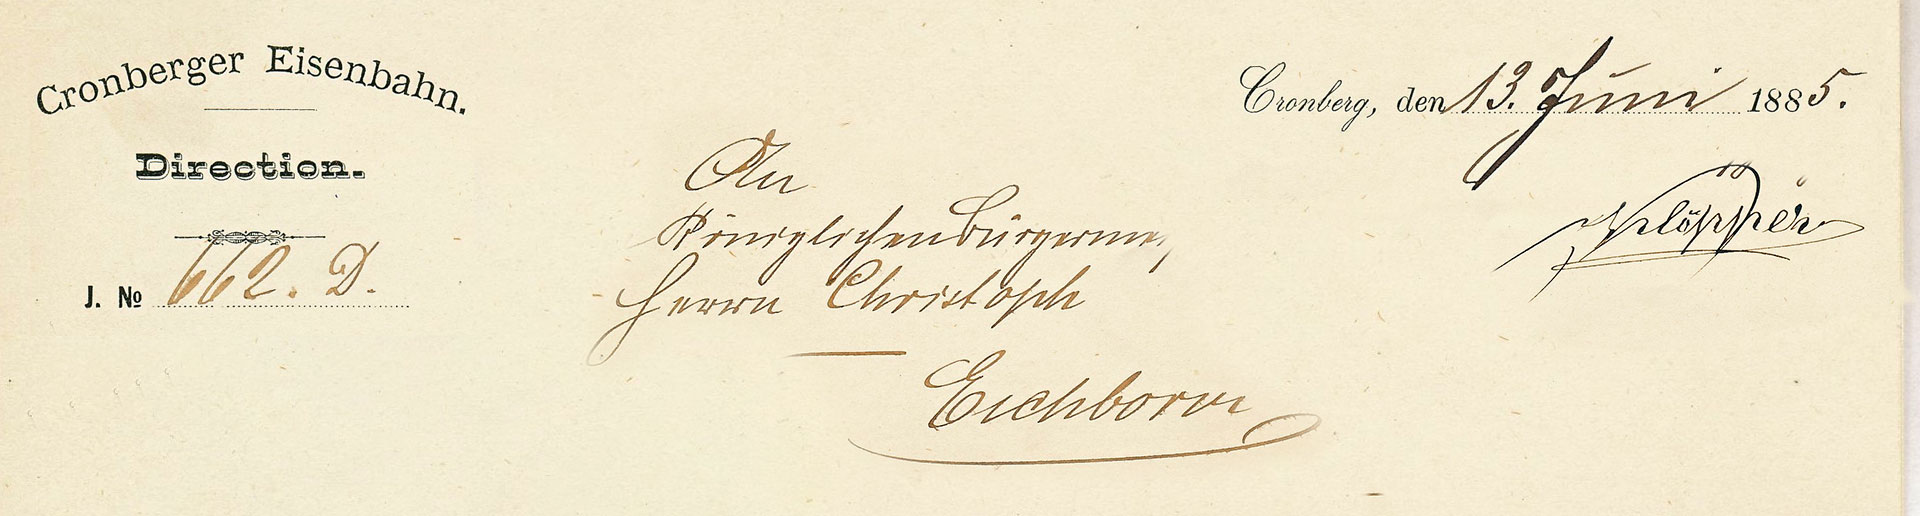 Cronberger Eisenbahn.
Direction.
J. № 662. D.
Cronberg, den 13. Juni 1885.
An
Königlichen Bürgerme
Herrn Christoph
Eichborn